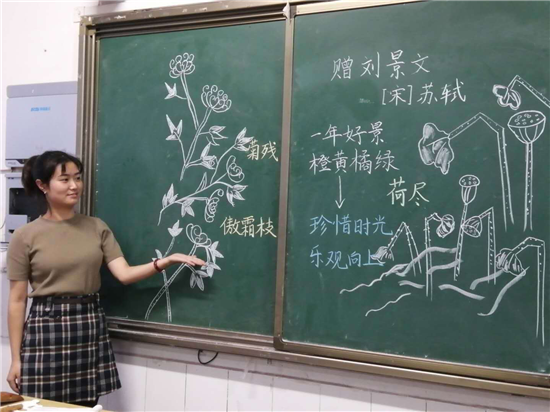 菊残
傲霜枝
赠刘景文
[宋]苏轼
一年好景
橙黄橘绿
荷尽
珍惜时光
乐观向上